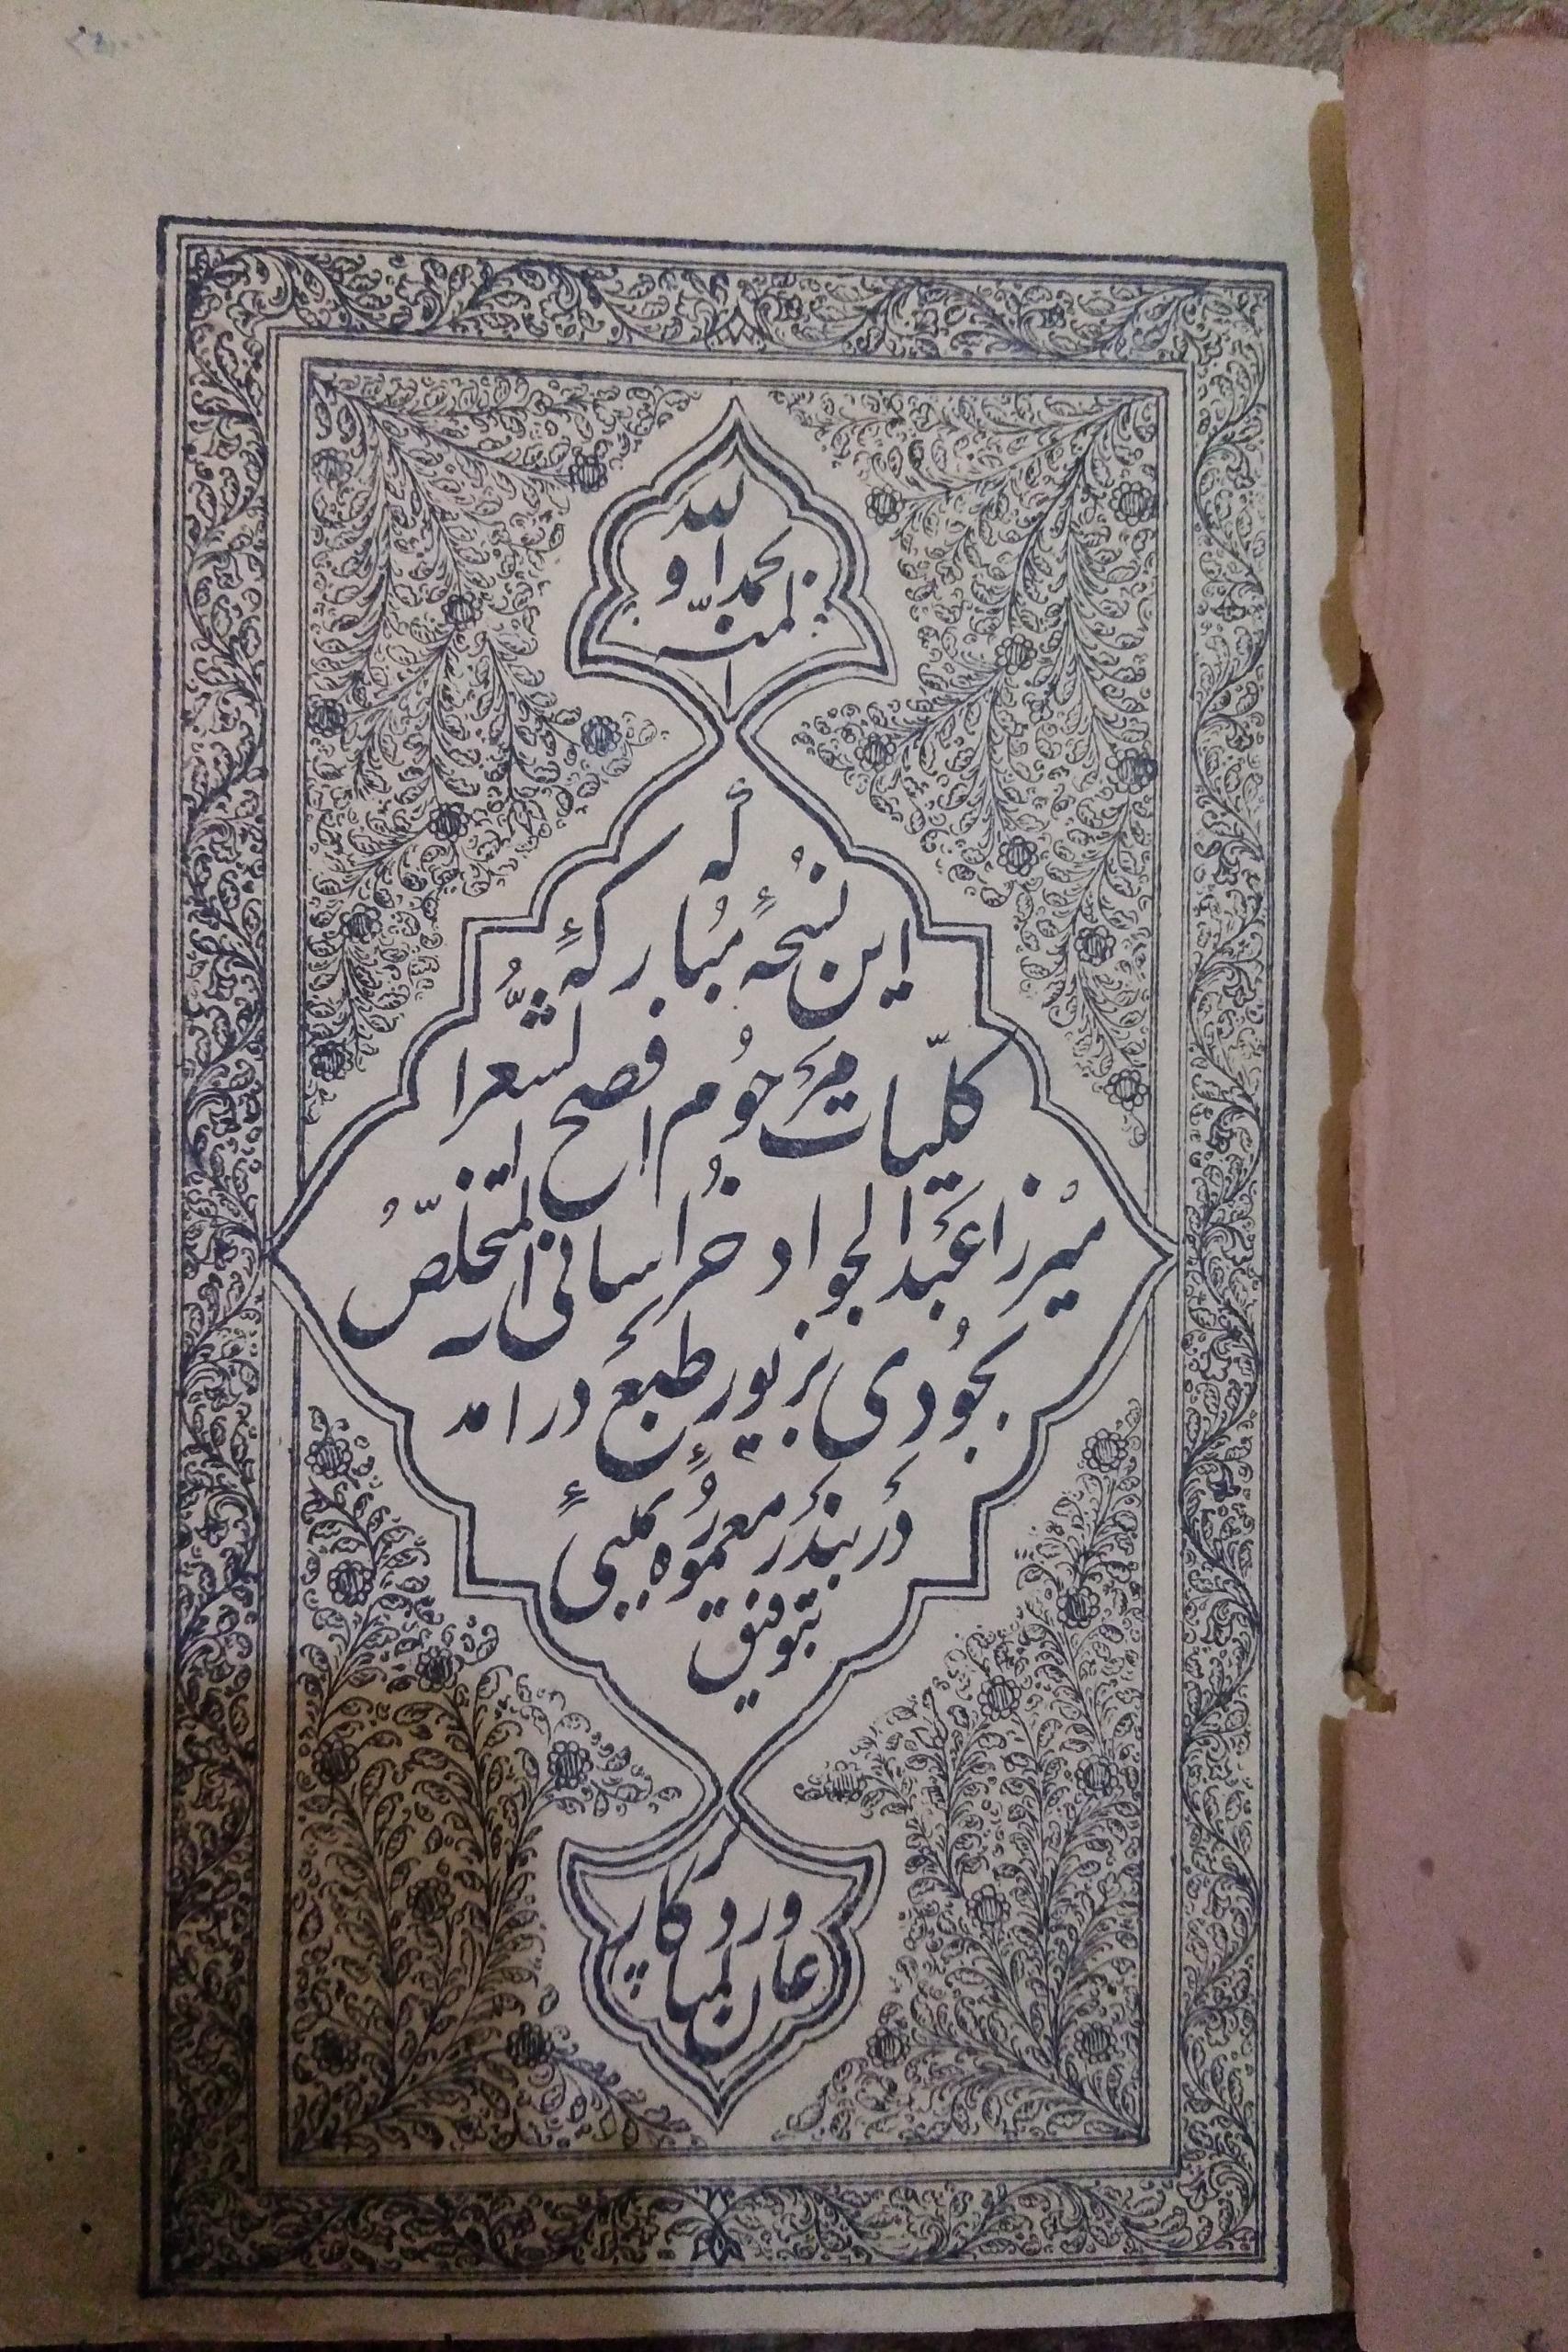 لله
الحمد و
المنه
که
این نسخهٔ مبارکهٔ
کلیّات مرحوم افصح الشّعرا
میرزا عبدالجواد خراسانی المتخلّص به
بجُودی بزیور طبع درآمد
در بندر معمورهٔ بمبئی
بتوفیق
پروردکار
عالمیان